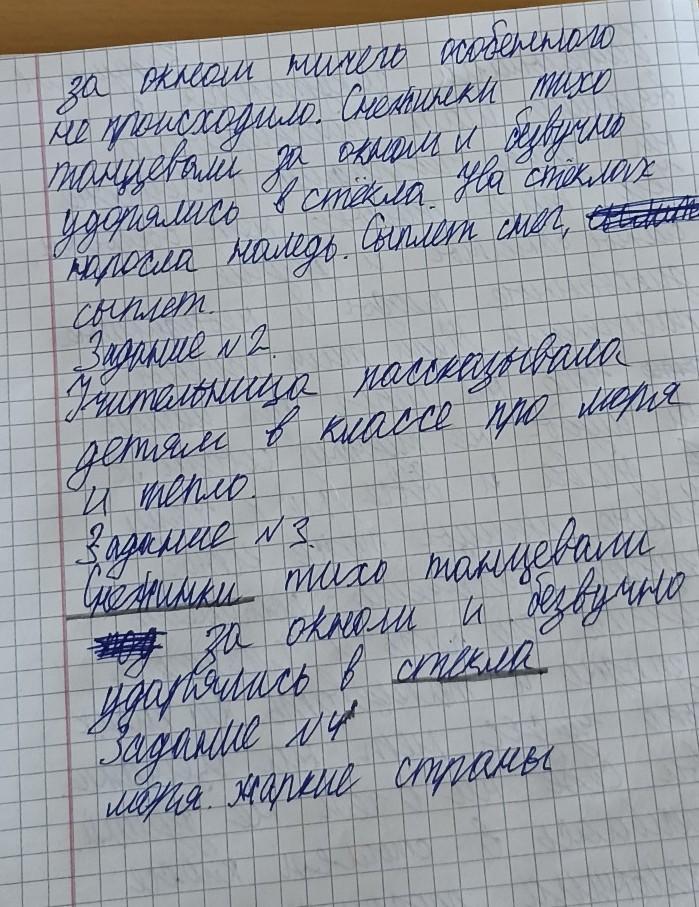 за окном ничего особенного
не происходило. Снежинки тихо
танцевали за окном и безвучно
ударялись в стёкла. На стёклах
наросла наледь. Сыплет снег,
сыплет.
Задание №2.
Учительница рассказывала
детям в классе про моря
и тепло.
Задание №3.
Снежинки тихо танцевали
за окном и безвучно
ударялись в стёкла
Задание №4
моря. жаркие страны